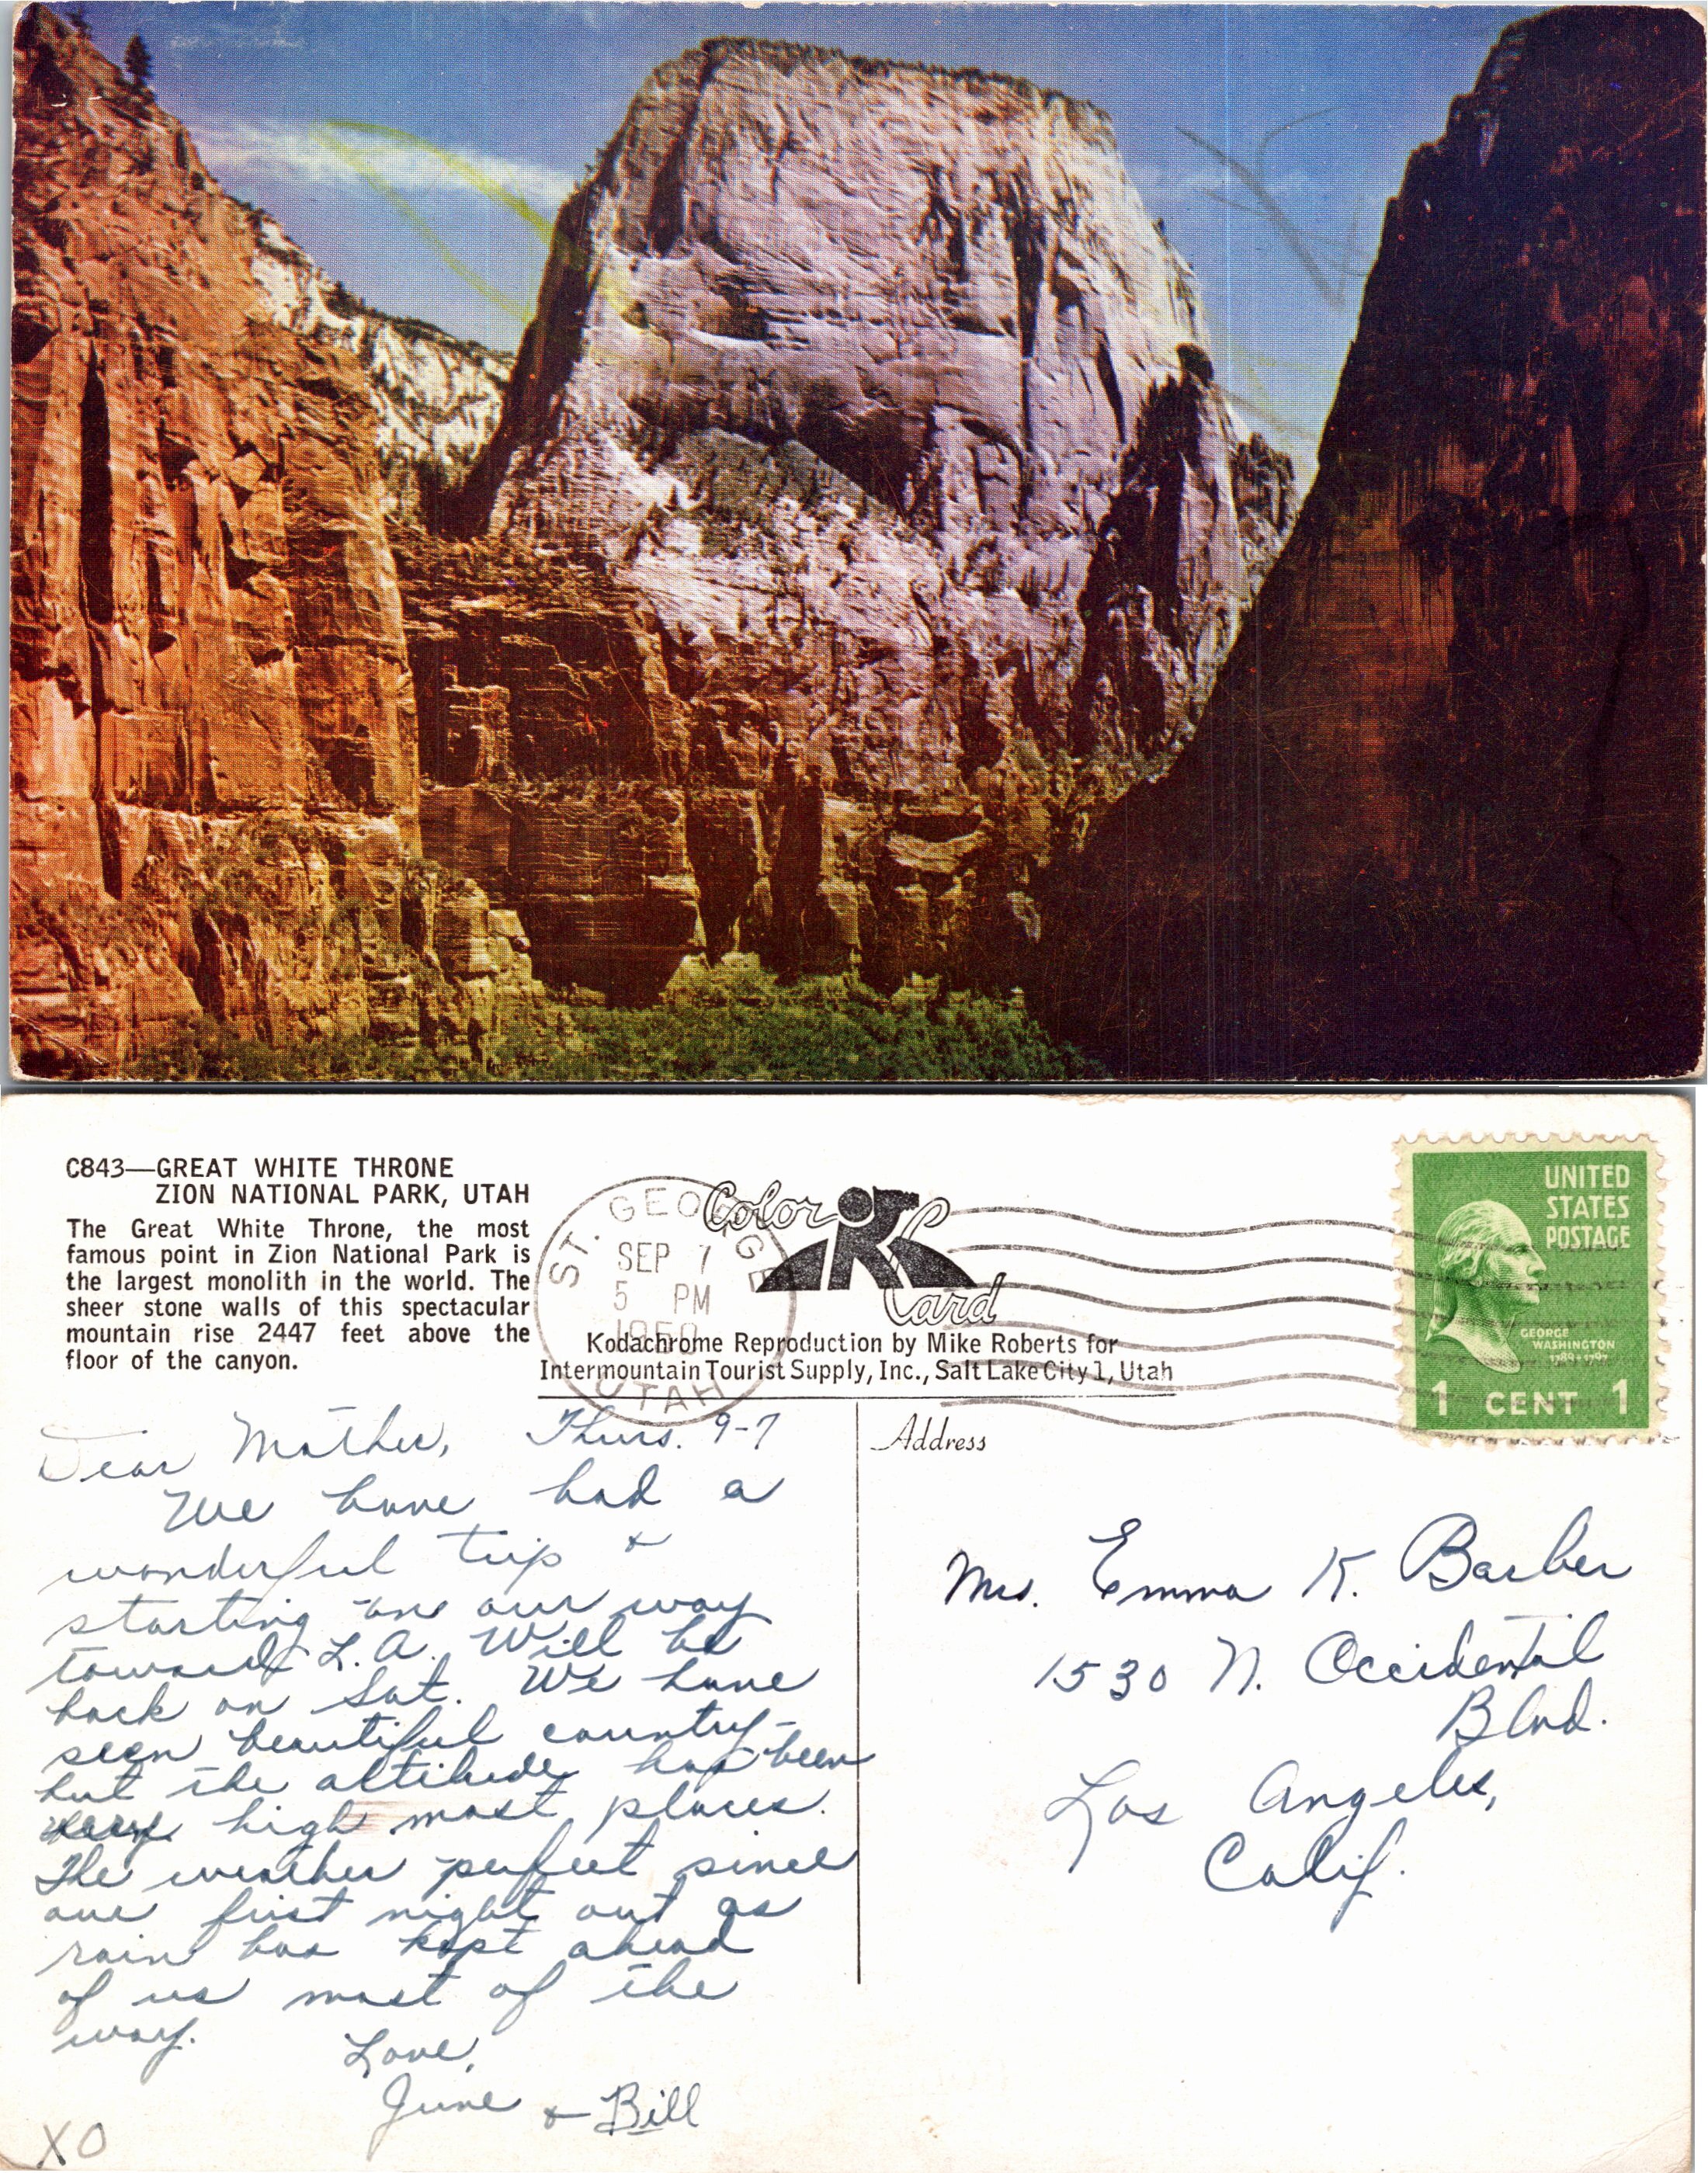 C843—GREAT WHITE THRONE
ZION NATIONAL PARK, UTAH
The Great White Throne, the most
famous point in Zion National Park is
the largest monolith in the world. The
sheer stone walls of this spectacular
mountain rise 2447 feet above the
floor of the canyon.
ST. GEORGE
SEP 7
5 PM
1950
UTAH
Color
Card
Kodachrome Reproduction by Mike Roberts for
Intermountain Tourist Supply, Inc., Salt Lake City 1, Utah
UNITED
STATES
POSTAGE
GEORGE
WASHINGTON
1789-1797
1 CENT 1
Dear Mother, Thurs. 9-7
We have had a
wonderful trip &
starting on our way
toward L.A. Will be
back on Sat. We have
seen beautiful country-
but the altitude has been
very high most places.
The weather perfect since
our first night out as
rain has kept ahead
of us most of the
way.
Love,
June & Bill
XO
Address
Mrs. Emma K. Barber
1530 N. Occidental
Blvd.
Los Angeles,
Calif.